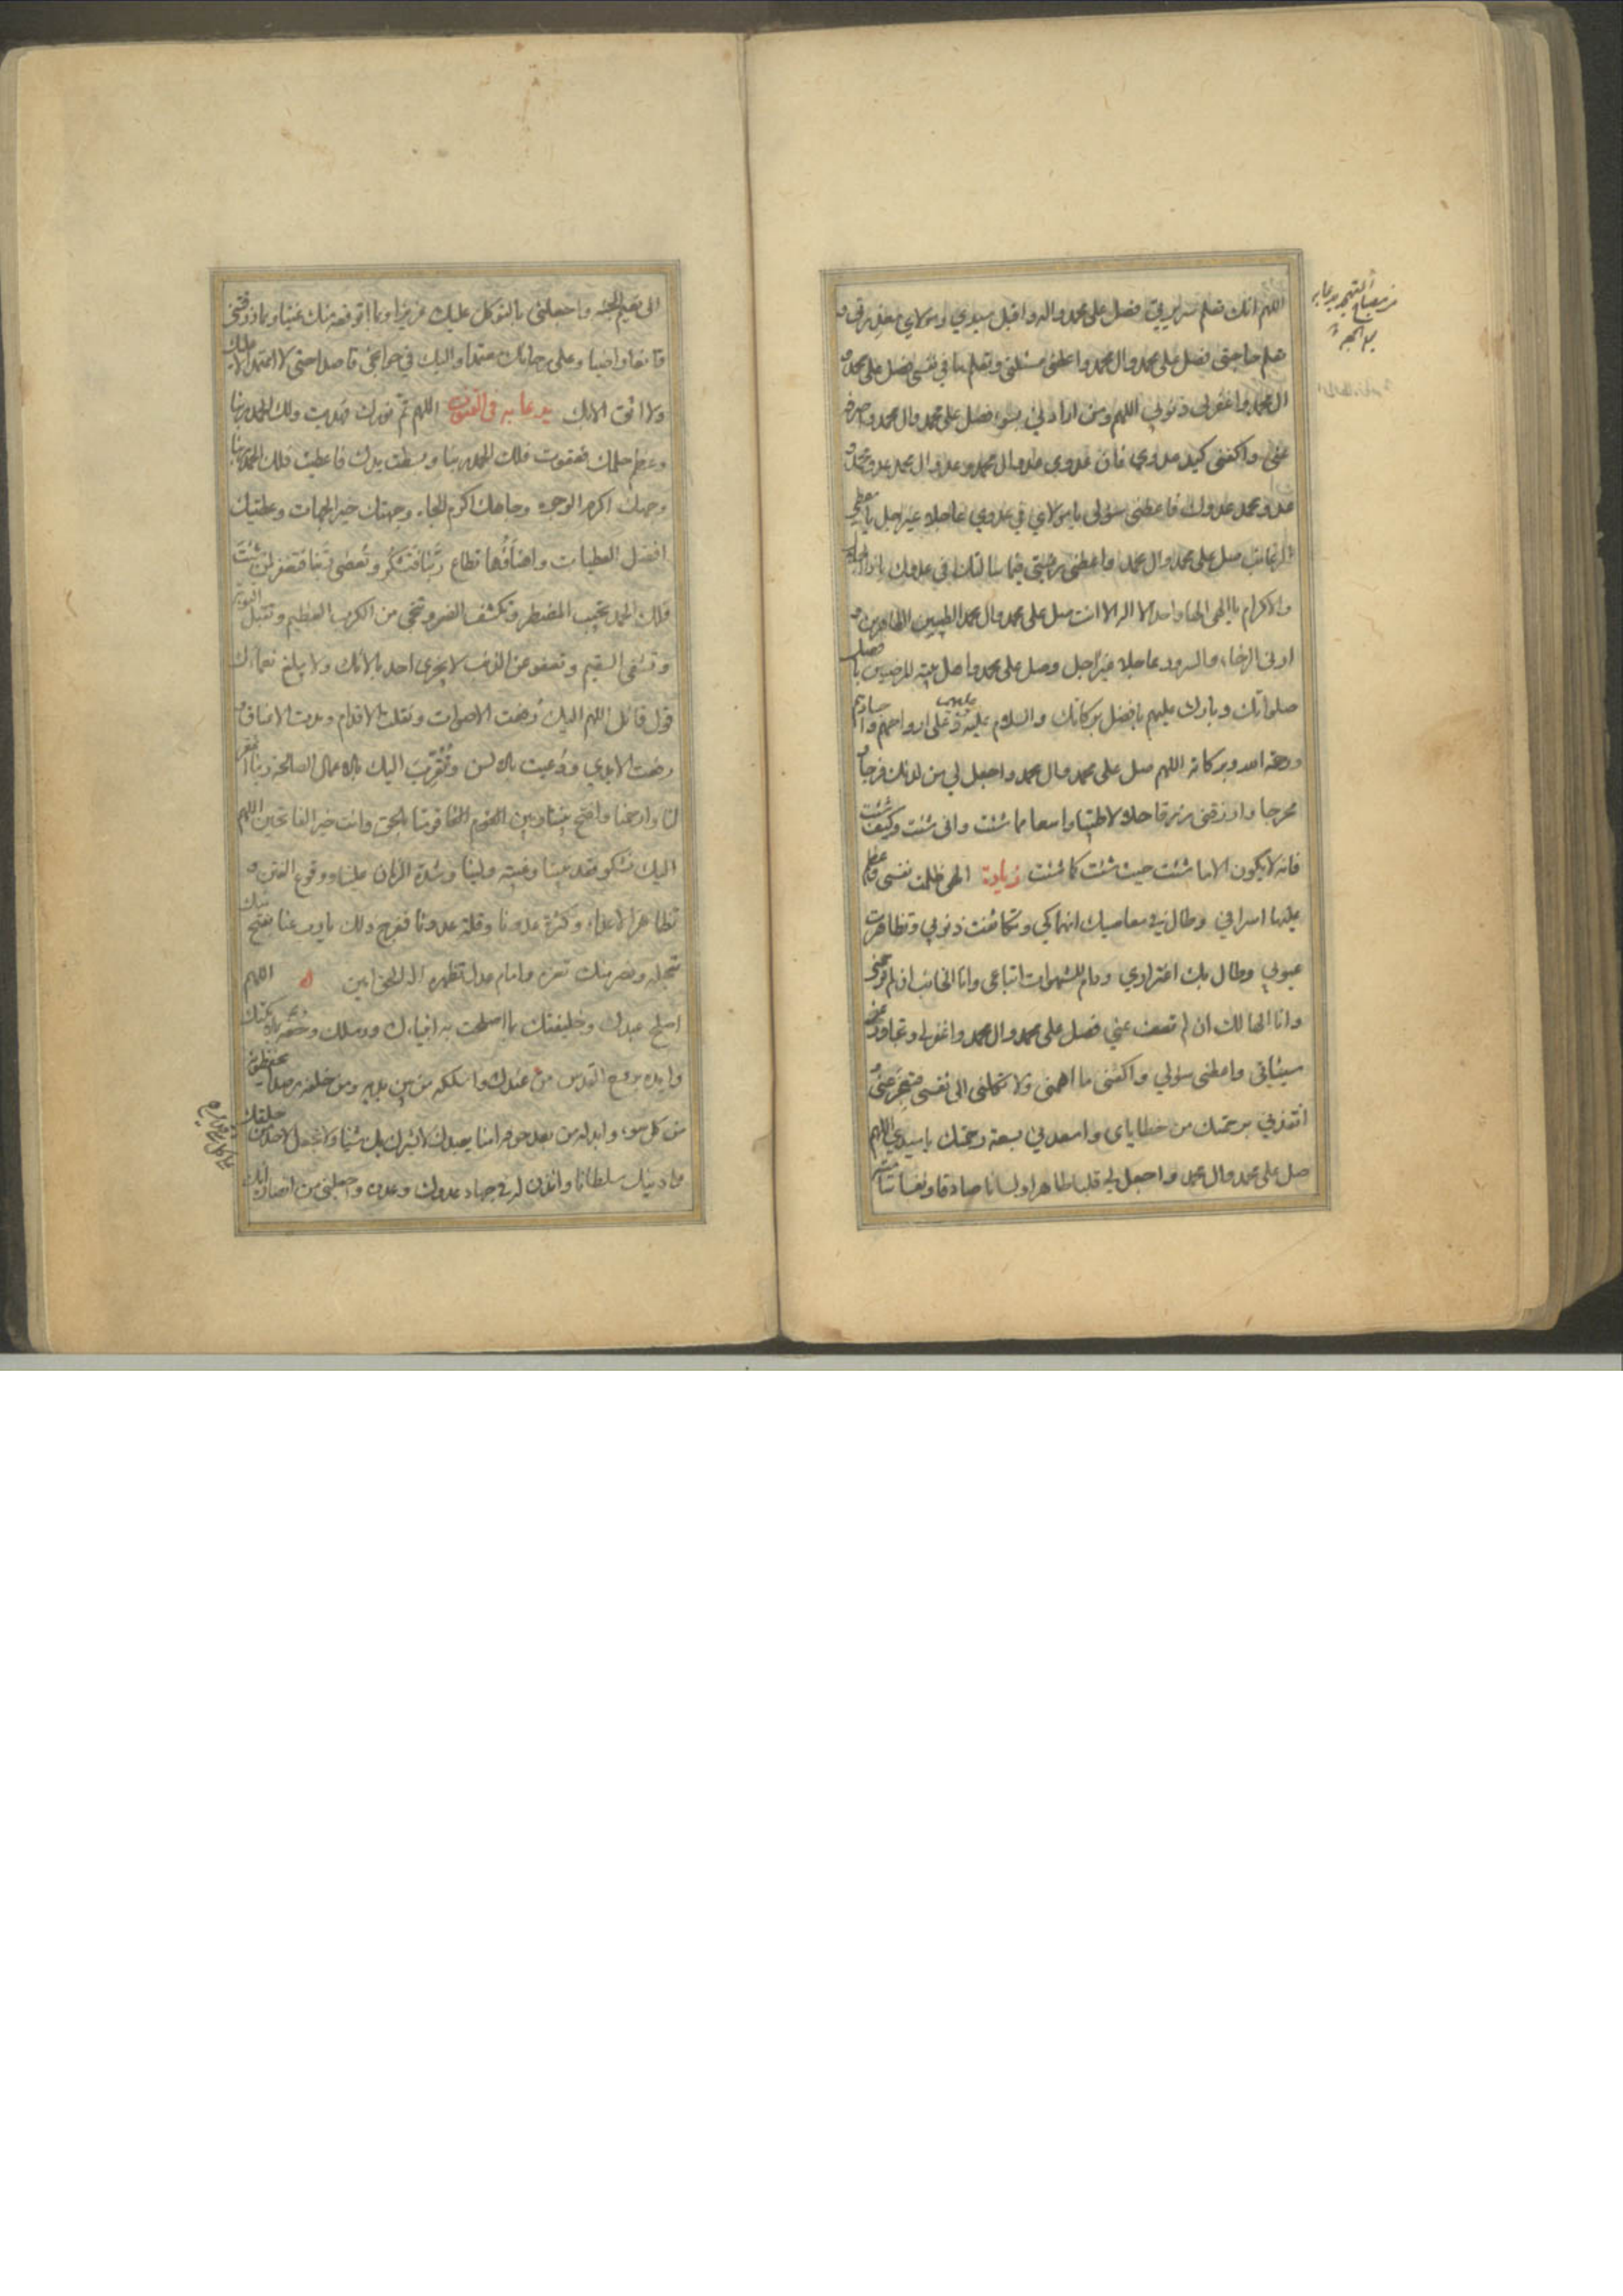 اللهم انك تعلم سريرتي فصل على محمد واله واقبل سيدي ومولاي معذرتي و
تعلم حاجتي فصل على محمد وال محمد واعطني مسئلتي وتعلم ما في نفسي فصل على محمد و
ال محمد واغفر لي ذنوبي اللهم ومن ارادني بسوء فصل على محمد وال محمد واصرفه
عني واكفني كيد عدوي فان عدوي عدو ال محمد وعدو ال محمد عدو محمد و
عدو محمد عدوك فاعطني سؤلي يا مولاي في عدوي عاجلا غير اجل يا معطي
الرغائب صل على محمد وال محمد واعطني رغبتي فيما سالتك في عدوك يا ذا الجلال
والاكرام يا الهي الها واحدا لا اله الا انت صل على محمد وال محمد الطيبين الطاهرين و
ارني الرخاء والسرور عاجلا غير اجل وصل على محمد واهل بيته المرضيين بافضل
صلواتك وبارك عليهم بافضل بركاتك والسلام عليه وعليهم وعلى ارواحهم واجسادهم
ورحمة الله وبركاته اللهم صل على محمد وال محمد واجعل لي من لدنك فرجا و
مخرجا وارزقني رزقا حلالا طيبا واسعا مما شئت وانى شئت وكيف شئت
فانه لا يكون الا ما شئت حيث شئت كما شئت زيادة الهي ظلمت نفسي وعظم
عليها اسرافي وطال في معاصيك انهماكي وتكاثفت ذنوبي وتظاهرت
عيوبي وطال بك اغتراري ودام للشهوات اتباعي وانا الخائب ان لم ترحمني
وانا الهالك ان لم تعف عني فصل على محمد وال محمد واغفر لي وتجاوز عن
سيئاتي واعطني سؤلي واكفني ما اهمني ولا تكلني الى نفسي فتعجز عني و
انقذني برحمتك من خطاياي واسعدني بسعة رحمتك يا سيدي اللهم
صل على محمد وال محمد واجعل لي قلبا طاهرا ولسانا صادقا ونفسا سامية
من مصباح المتهجد يدعا به
الى نعيم الجنة واجعلني بالتوكل عليك عزيزا وبما اتوقعه منك غنيا وبما رزقتني
قانعا راضيا وعلى رجائك معتمدا واليك في حوائجي قاصدا حتى لا اعتمد الا عليك
ولا اثق الا بك يدعا به في القنوت اللهم تم نورك فهديت ولك الحمد ربنا
وعظم حلمك فعفوت فلك الحمد ربنا وبسطت يدك فاعطيت فلك الحمد ربنا
وجهك اكرم الوجوه وجاهك اكرم الجاه وجهتك خير الجهات وعطيتك
افضل العطيات واهناؤها تطاع ربنا فتشكر وتعصى ربنا فتغفر لمن شئت
فلك الحمد تجيب المضطر وتكشف الضر وتنجي من الكرب العظيم وتقبل التوبة
وتشفي السقيم وتعفو عن الذنب لا يجزي احد بالائك ولا يبلغ نعماءك
قول قائل اللهم اليك رفعت الاصوات ونقلت الاقدام ومدت الاعناق و
رفعت الايدي ودعيت بالالسن وتقرب اليك بالاعمال الصالحة ربنا اغفر
لنا وارحمنا وافتح بيننا وبين قومنا بالحق وانت خير الفاتحين اللهم
اليك نشكو فقد نبينا وغيبة ولينا وشدة الزمان علينا ووقوع الفتن و
تظاهر الاعداء وكثرة عدونا وقلة عددنا ففرج ذلك يا رب عنا بفتح منك
تعجله ونصر منك تعزه وامام عدل تظهره اله الحق امين اللهم
اصلح عبدك وخليفتك بما اصلحت به انبياءك ورسلك وحفه بملائكتك
وايده بروح القدس من عندك واسلكه من بين يديه ومن خلفه رصدا يحفظونه
من كل سوء وابدله من بعد خوفه امنا يعبدك لا يشرك بك شيئا ولا تجعل لاحد من خلقك
على وليك سلطانا وائذن له في جهاد عدوك وعدوه واجعلني من انصاره انك